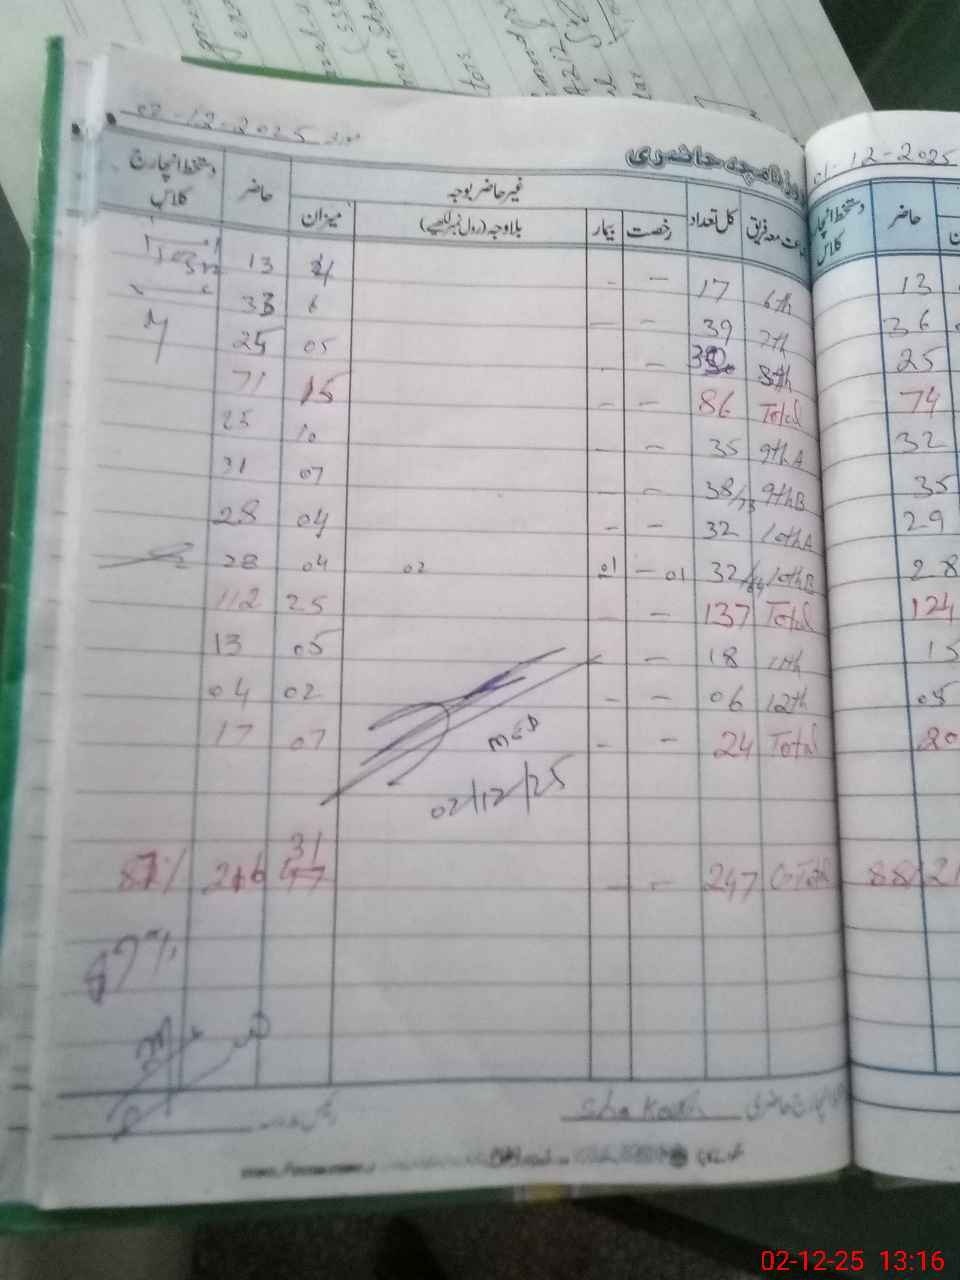 02-12-2025
روزنامچہ حاضری
جماعت معہ فریق کل تعداد رخصت بیمار بلاوجہ (رول نمبر لکھیے) میزان حاضر دستخط انچارج کلاس
غیر حاضر بوجہ
6th 17 - - 4 13
7th 39 - - 6 33
8th 30 - - 05 25
Total 86 - - 15 71
9th A 35 - - 10 25
9th B 38/73 - - 07 31
10th A 32 - - 04 28
10th B 32/64 - 01 01 02 04 28
Total 137 - - 25 112
11th 18 - - 05 13
12th 06 - - 02 04
Total 24 - - 07 17
02/12/25
G-Total 247 - - 31 216 87%
87%
01-12-2025
حاضر دستخط انچارج کلاس
13
36
25
74
32
35
29
28
124
15
05
20
88
02-12-25 13:16